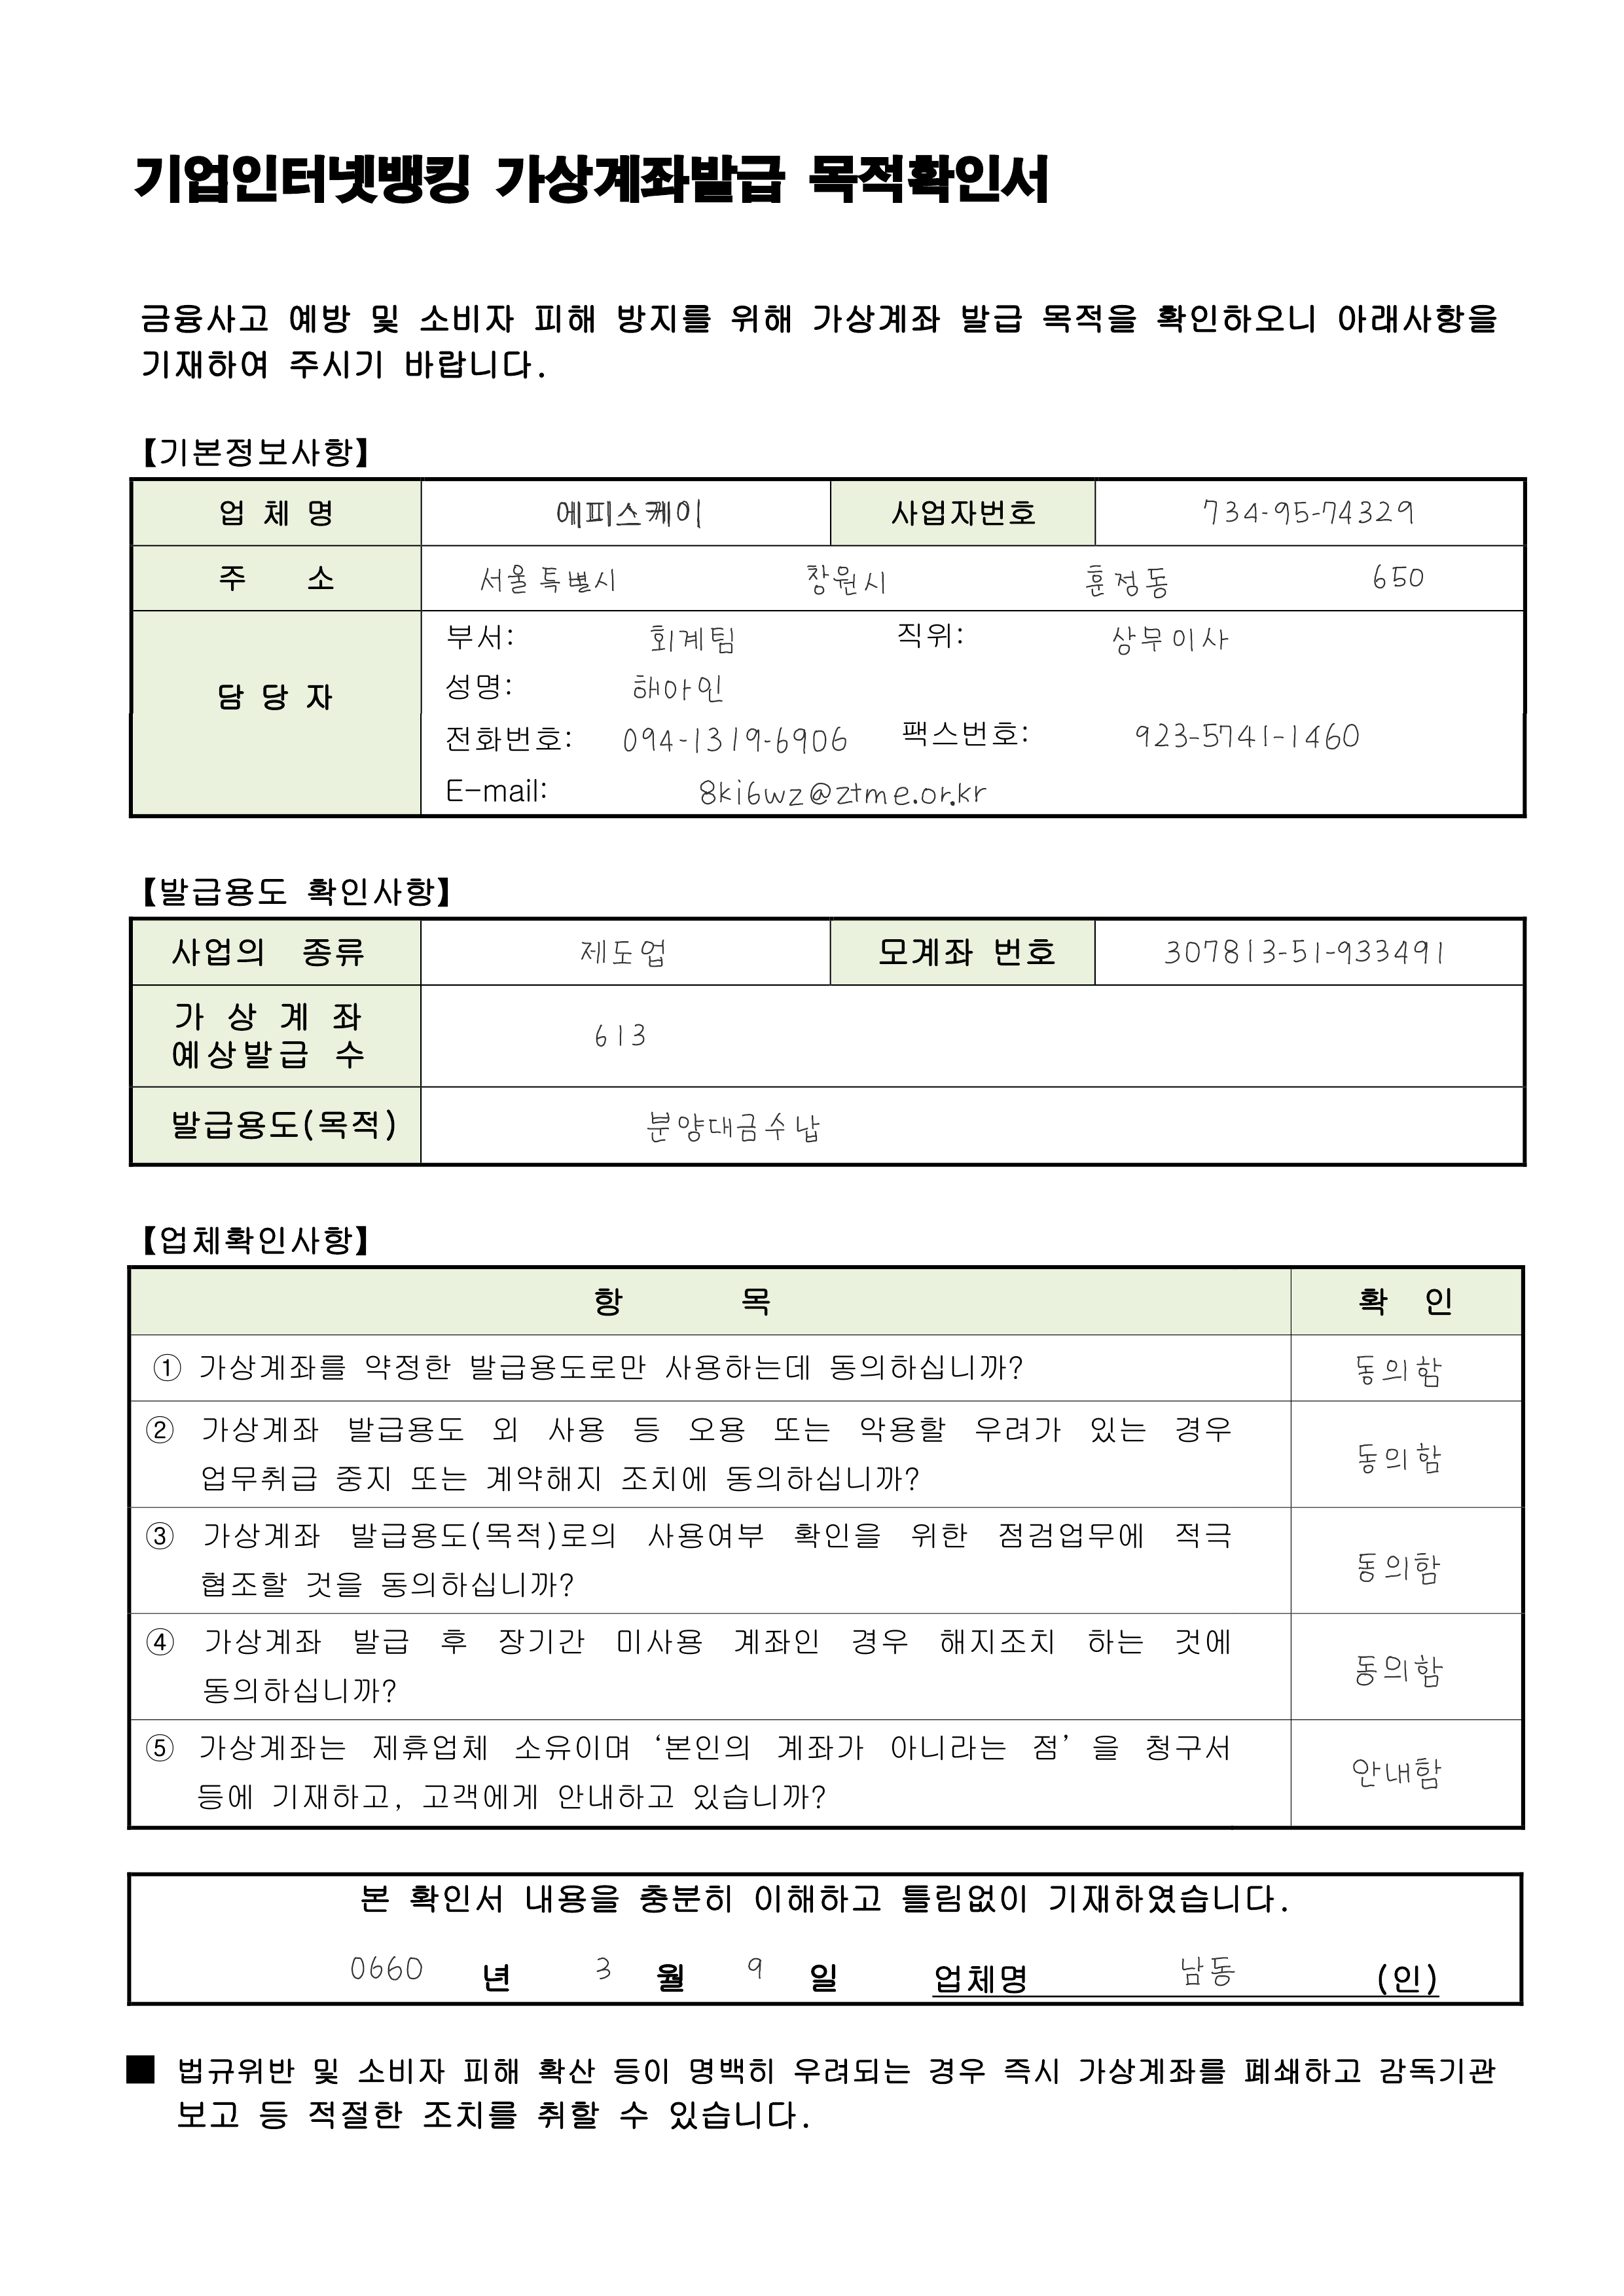 기업인터넷뱅킹 가상계좌발급 목적확인서
금융사고 예방 및 소비자 피해 방지를 위해 가상계좌 발급 목적을 확인하오니 아래사항을
기재하여 주시기 바랍니다.
【기본정보사항】
업 체 명 에피스케이 사업자번호 734-95-74329
주 소 서울특별시 창원시 훈정동 650
담 당 자
부서: 회계팀 직위: 상무이사
성명: 해아인
전화번호: 094-1319-6906 팩스번호: 923-5741-1460
E-mail: 8ki6wz@ztme.or.kr
【발급용도 확인사항】
사업의 종류 제도업 모계좌 번호 307813-51-933491
가 상 계 좌
예상발급 수 613
발급용도(목적) 분양대금수납
【업체확인사항】
항 목 확 인
① 가상계좌를 약정한 발급용도로만 사용하는데 동의하십니까? 동의함
② 가상계좌 발급용도 외 사용 등 오용 또는 악용할 우려가 있는 경우
업무취급 중지 또는 계약해지 조치에 동의하십니까? 동의함
③ 가상계좌 발급용도(목적)로의 사용여부 확인을 위한 점검업무에 적극
협조할 것을 동의하십니까? 동의함
④ 가상계좌 발급 후 장기간 미사용 계좌인 경우 해지조치 하는 것에
동의하십니까? 동의함
⑤ 가상계좌는 제휴업체 소유이며 ‘본인의 계좌가 아니라는 점’ 을 청구서
등에 기재하고, 고객에게 안내하고 있습니까? 안내함
본 확인서 내용을 충분히 이해하고 틀림없이 기재하였습니다.
0660 년 3 월 9 일 업체명 남동 (인)
■ 법규위반 및 소비자 피해 확산 등이 명백히 우려되는 경우 즉시 가상계좌를 폐쇄하고 감독기관
보고 등 적절한 조치를 취할 수 있습니다.